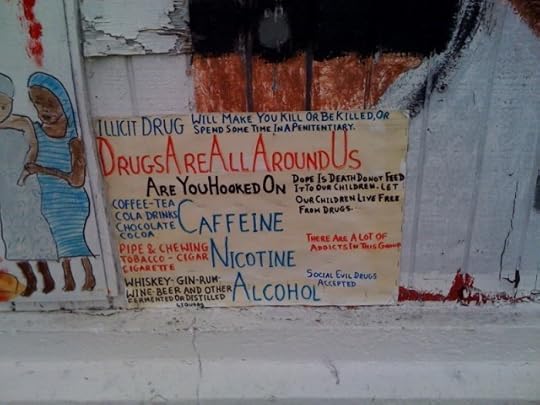 ILLICIT DRUG WILL MAKE YOU KILL OR BE KILLED, OR
SPEND SOME TIME IN A PENITENTIARY.
DRUGS ARE ALL AROUND US
ARE YOU HOOKED ON
DOPE IS DEATH DO NOT FEED
IT TO OUR CHILDREN. LET
OUR CHILDREN LIVE FREE
FROM DRUGS.
COFFEE-TEA
COLA DRINKS
CHOCOLATE
COCOA
CAFFEINE
PIPE & CHEWING
TOBACCO - CIGAR
CIGARETTE
NICOTINE
THERE ARE A LOT OF
ADDICTS IN THIS GROUP
WHISKEY-GIN-RUM-
WINE-BEER AND OTHER
FERMENTED OR DISTILLED
LIQUORS
ALCOHOL
SOCIAL EVIL DRUGS
ACCEPTED